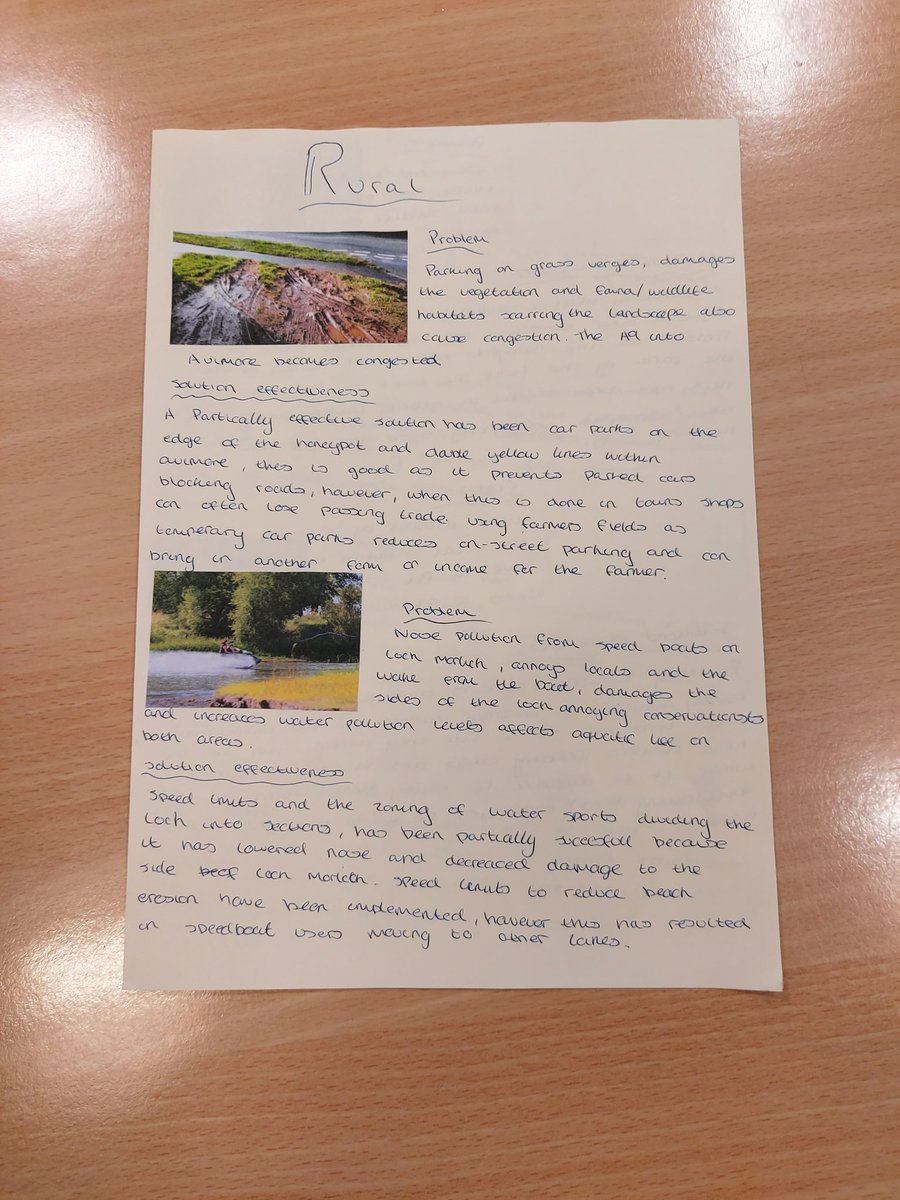 Rural
Problem
Parking on grass verges, damages
the vegetation and fauna/wildlife
habitats scarring the landscape also
cause congestion. The A9 into
Avimore becomes congested
Solution effectiveness
A Partically effective solution has been car parks on the
edge of the honeypot and double yellow lines within
avimore, this is good as it prevents parked cars
blocking roads, however, when this is done in towns shops
can often lose passing trade. Using farmers fields as
temperary car parks reduces on-street parking and can
bring in another form of income for the farmer.
Problem
Noise pollution from speed boats on
Loch Morlich, annoys locals and the
wake from the boat, damages the
sides of the loch annoying conservationists
and increases water pollution levels affects aquatic life in
both areas.
Solution effectiveness
Speed limits and the zoning of water sports dividing the
Loch into sections, has been partically succesfull because
it has lowered noise and decreaced damage to the
side Loch Morlich. Speed limits to reduce beach
erosion have been implemented, however this has resulted
in speedboat users moving to other lakes.